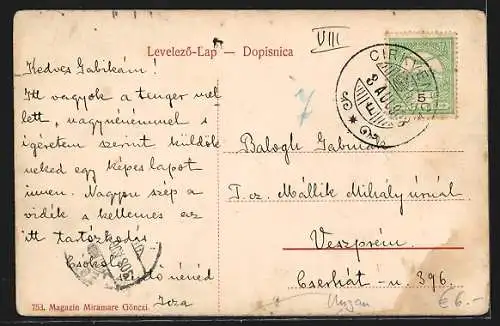 Levelező-Lap — Dopisnica
VIII
Kedves Gabikám!
Itt vagyok a tenger mel
lett, nagynénémmel s
igéretem szerint küldök
neked egy képes lapot
innen. Nagyon szép a
vidék s kellemes az
itt tartózkodás.
Csókol
szerető nénéd
Icza
Balogh Gabinak
T. cz. Mállik Mihály úrnál
Veszprém.
Cserhát-u. 396.
753. Magazin Miramare Gönczi.
€ 6.-